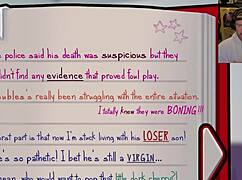 police said his death was suspicious but they
dn't find any evidence that proved foul play.
really been struggling with the entire situation.
I totally knew they were BONING!!!
rst part is that now I'm stuck living with his LOSER son!
e's so pathetic! I bet he's still a VIRGIN...
who would want to pop that little dark cherry?!